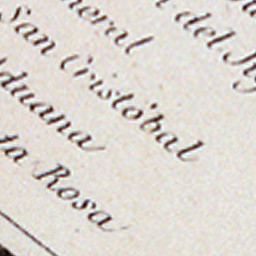 neral
del
San Cristóbal
duana
ta Rosa